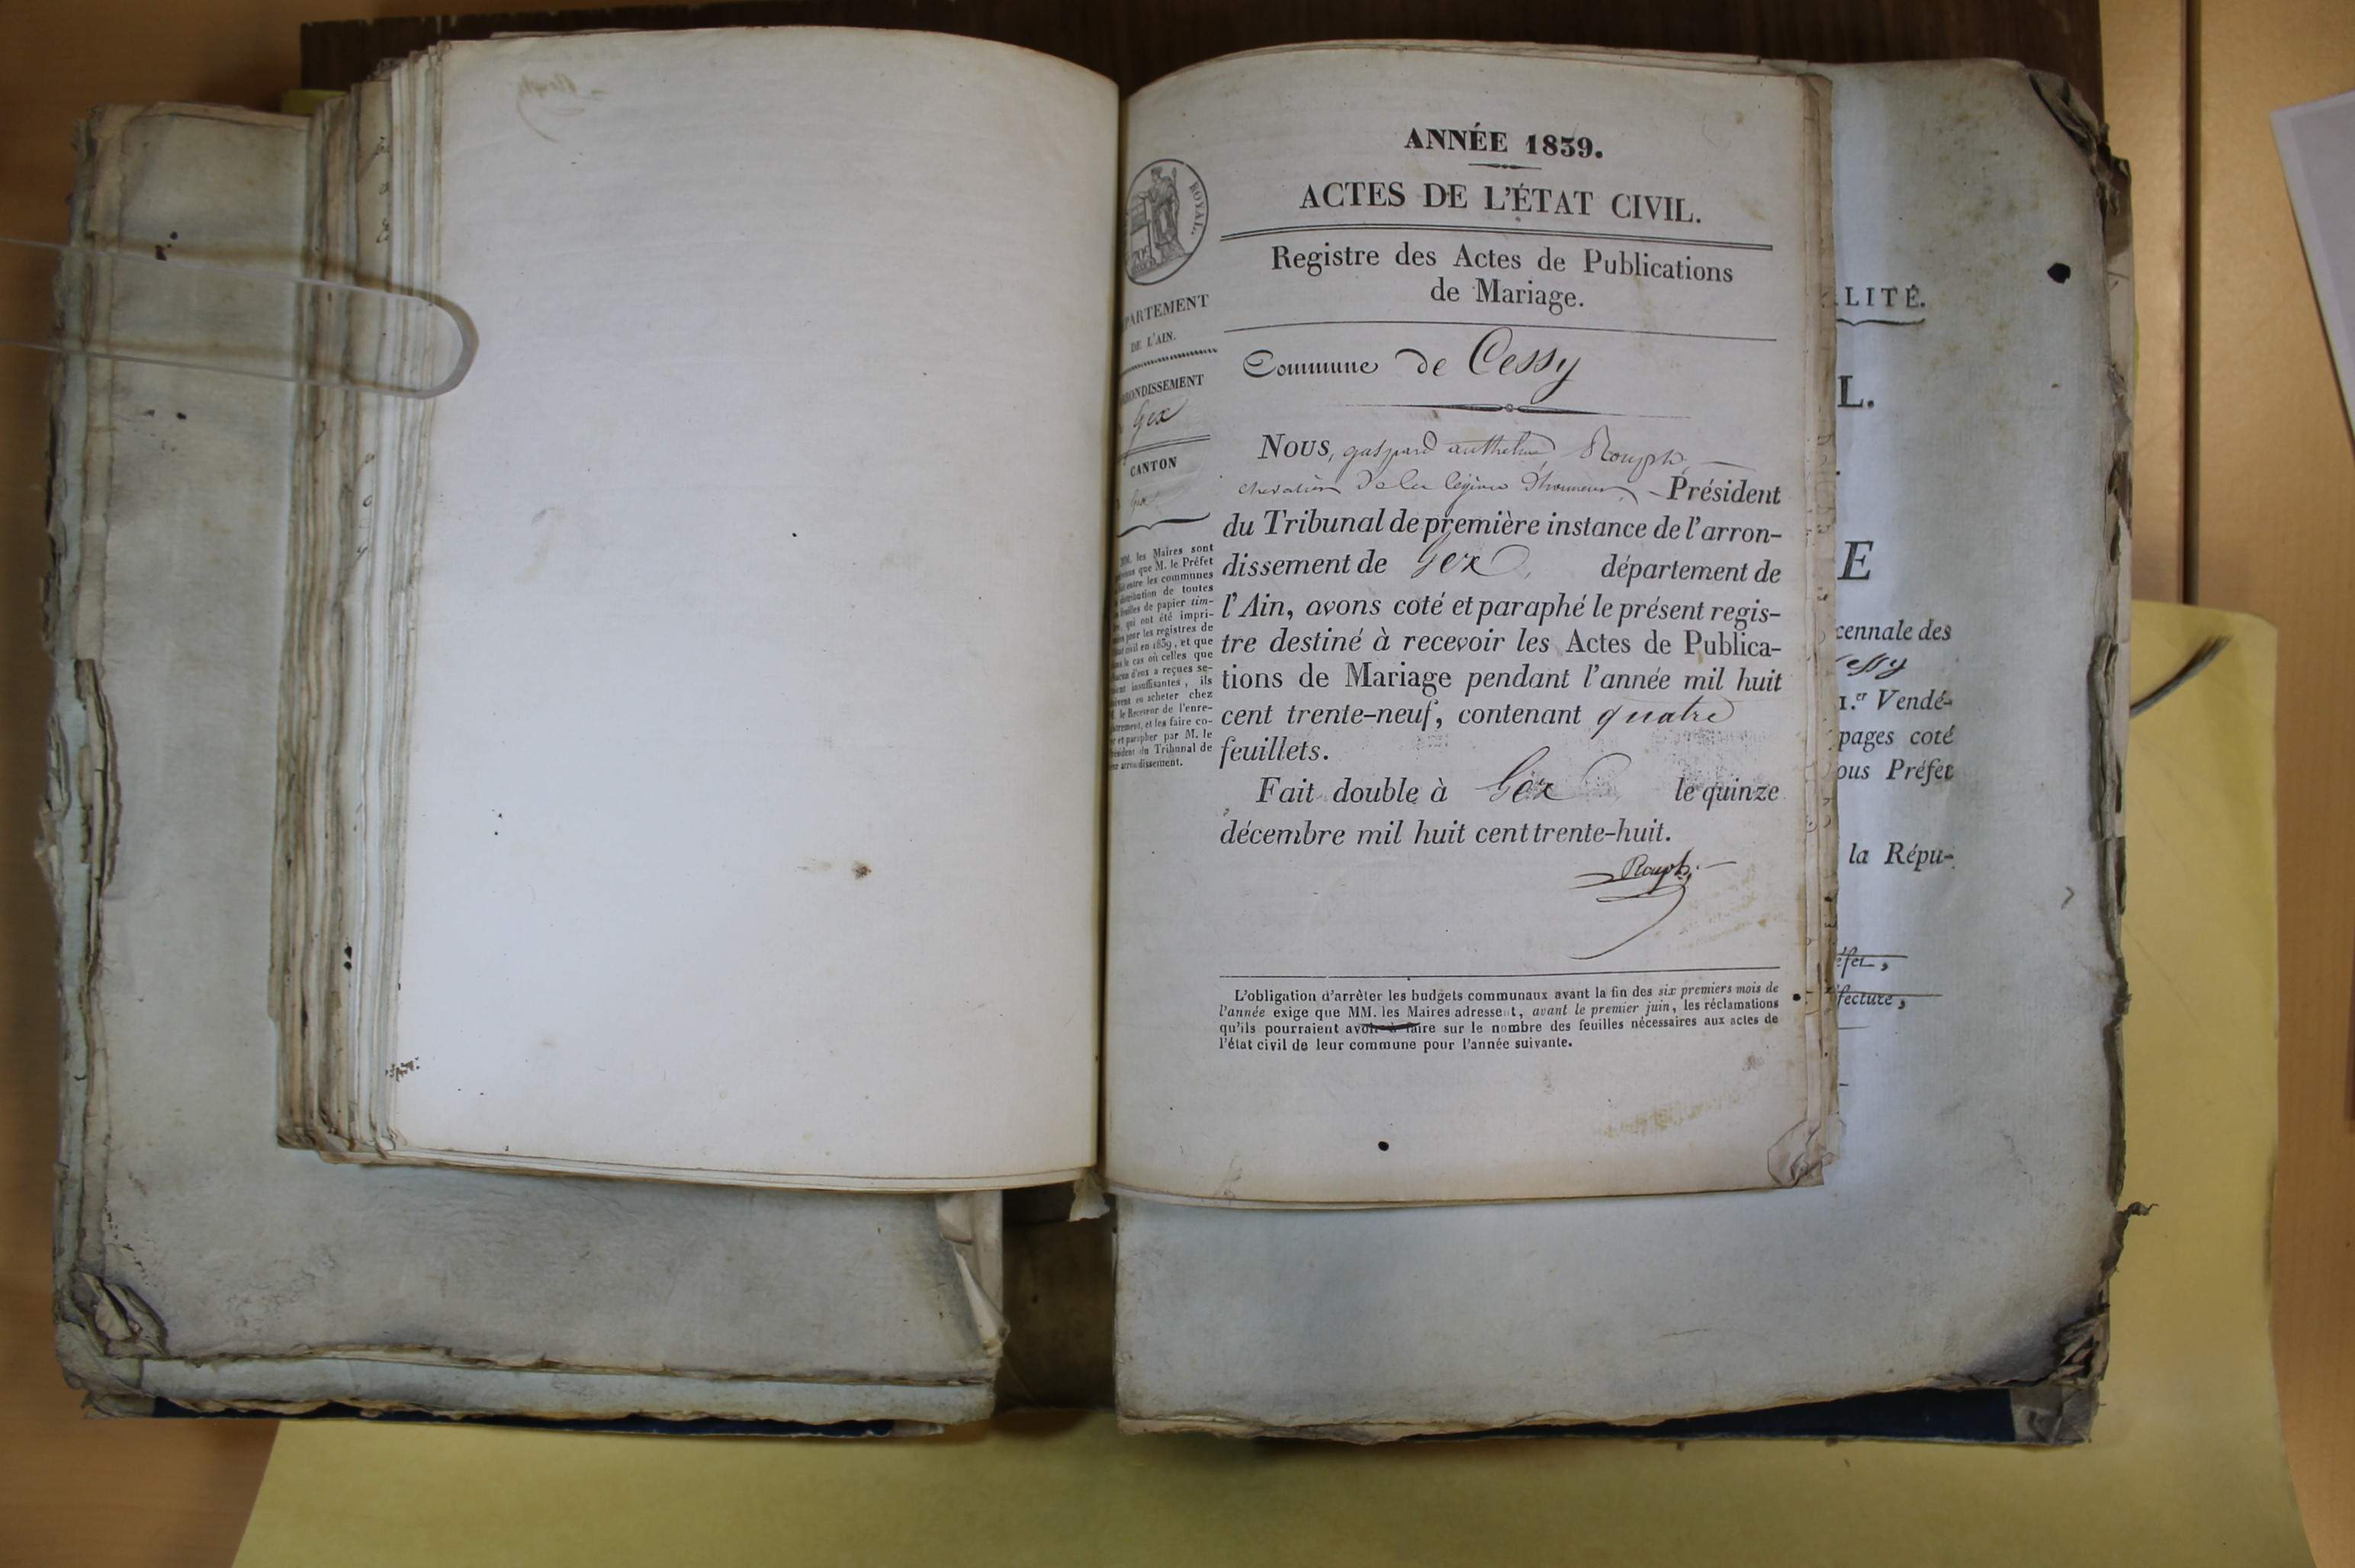 ANNÉE 1839.
ACTES DE L'ÉTAT CIVIL.
Registre des Actes de Publications
de Mariage.
Commune de Cessy
ROYAL.
PARTEMENT
DE L'AIN.
RONDISSEMENT
Gex
CANTON
Gex
MM. les Maires sont
que M. le Préfet
entre les communes
distribution de toutes
feuilles de papier tim-
qui ont été impri-
pour les registres de
civil en 1839, et que
le cas où celles que
d'eux a reçues se-
insuffisantes, ils
en acheter chez
M. le Receveur de l'enre-
et les faire co-
et parapher par M. le
Président du Tribunal de
arrondissement.
NOUS, gaspard anthelme Rouph
chevalier de la légion d'honneur, Président
du Tribunal de première instance de l'arron-
dissement de Gex, département de
l'Ain, avons coté et paraphé le présent regis-
tre destiné à recevoir les Actes de Publica-
tions de Mariage pendant l'année mil huit
cent trente-neuf, contenant quatre
feuillets.
Fait double à Gex le quinze
décembre mil huit cent trente-huit.
Rouph
L'obligation d'arrêter les budgets communaux avant la fin des six premiers mois de
l'année exige que MM. les Maires adressent, avant le premier juin, les réclamations
qu'ils pourraient avoir à faire sur le nombre des feuilles nécessaires aux actes de
l'état civil de leur commune pour l'année suivante.
LITÉ.
L.
E
cennale des
Cessy
1.er Vendé-
pages coté
ous Préfet
la Répu-
éfet,
fecture,